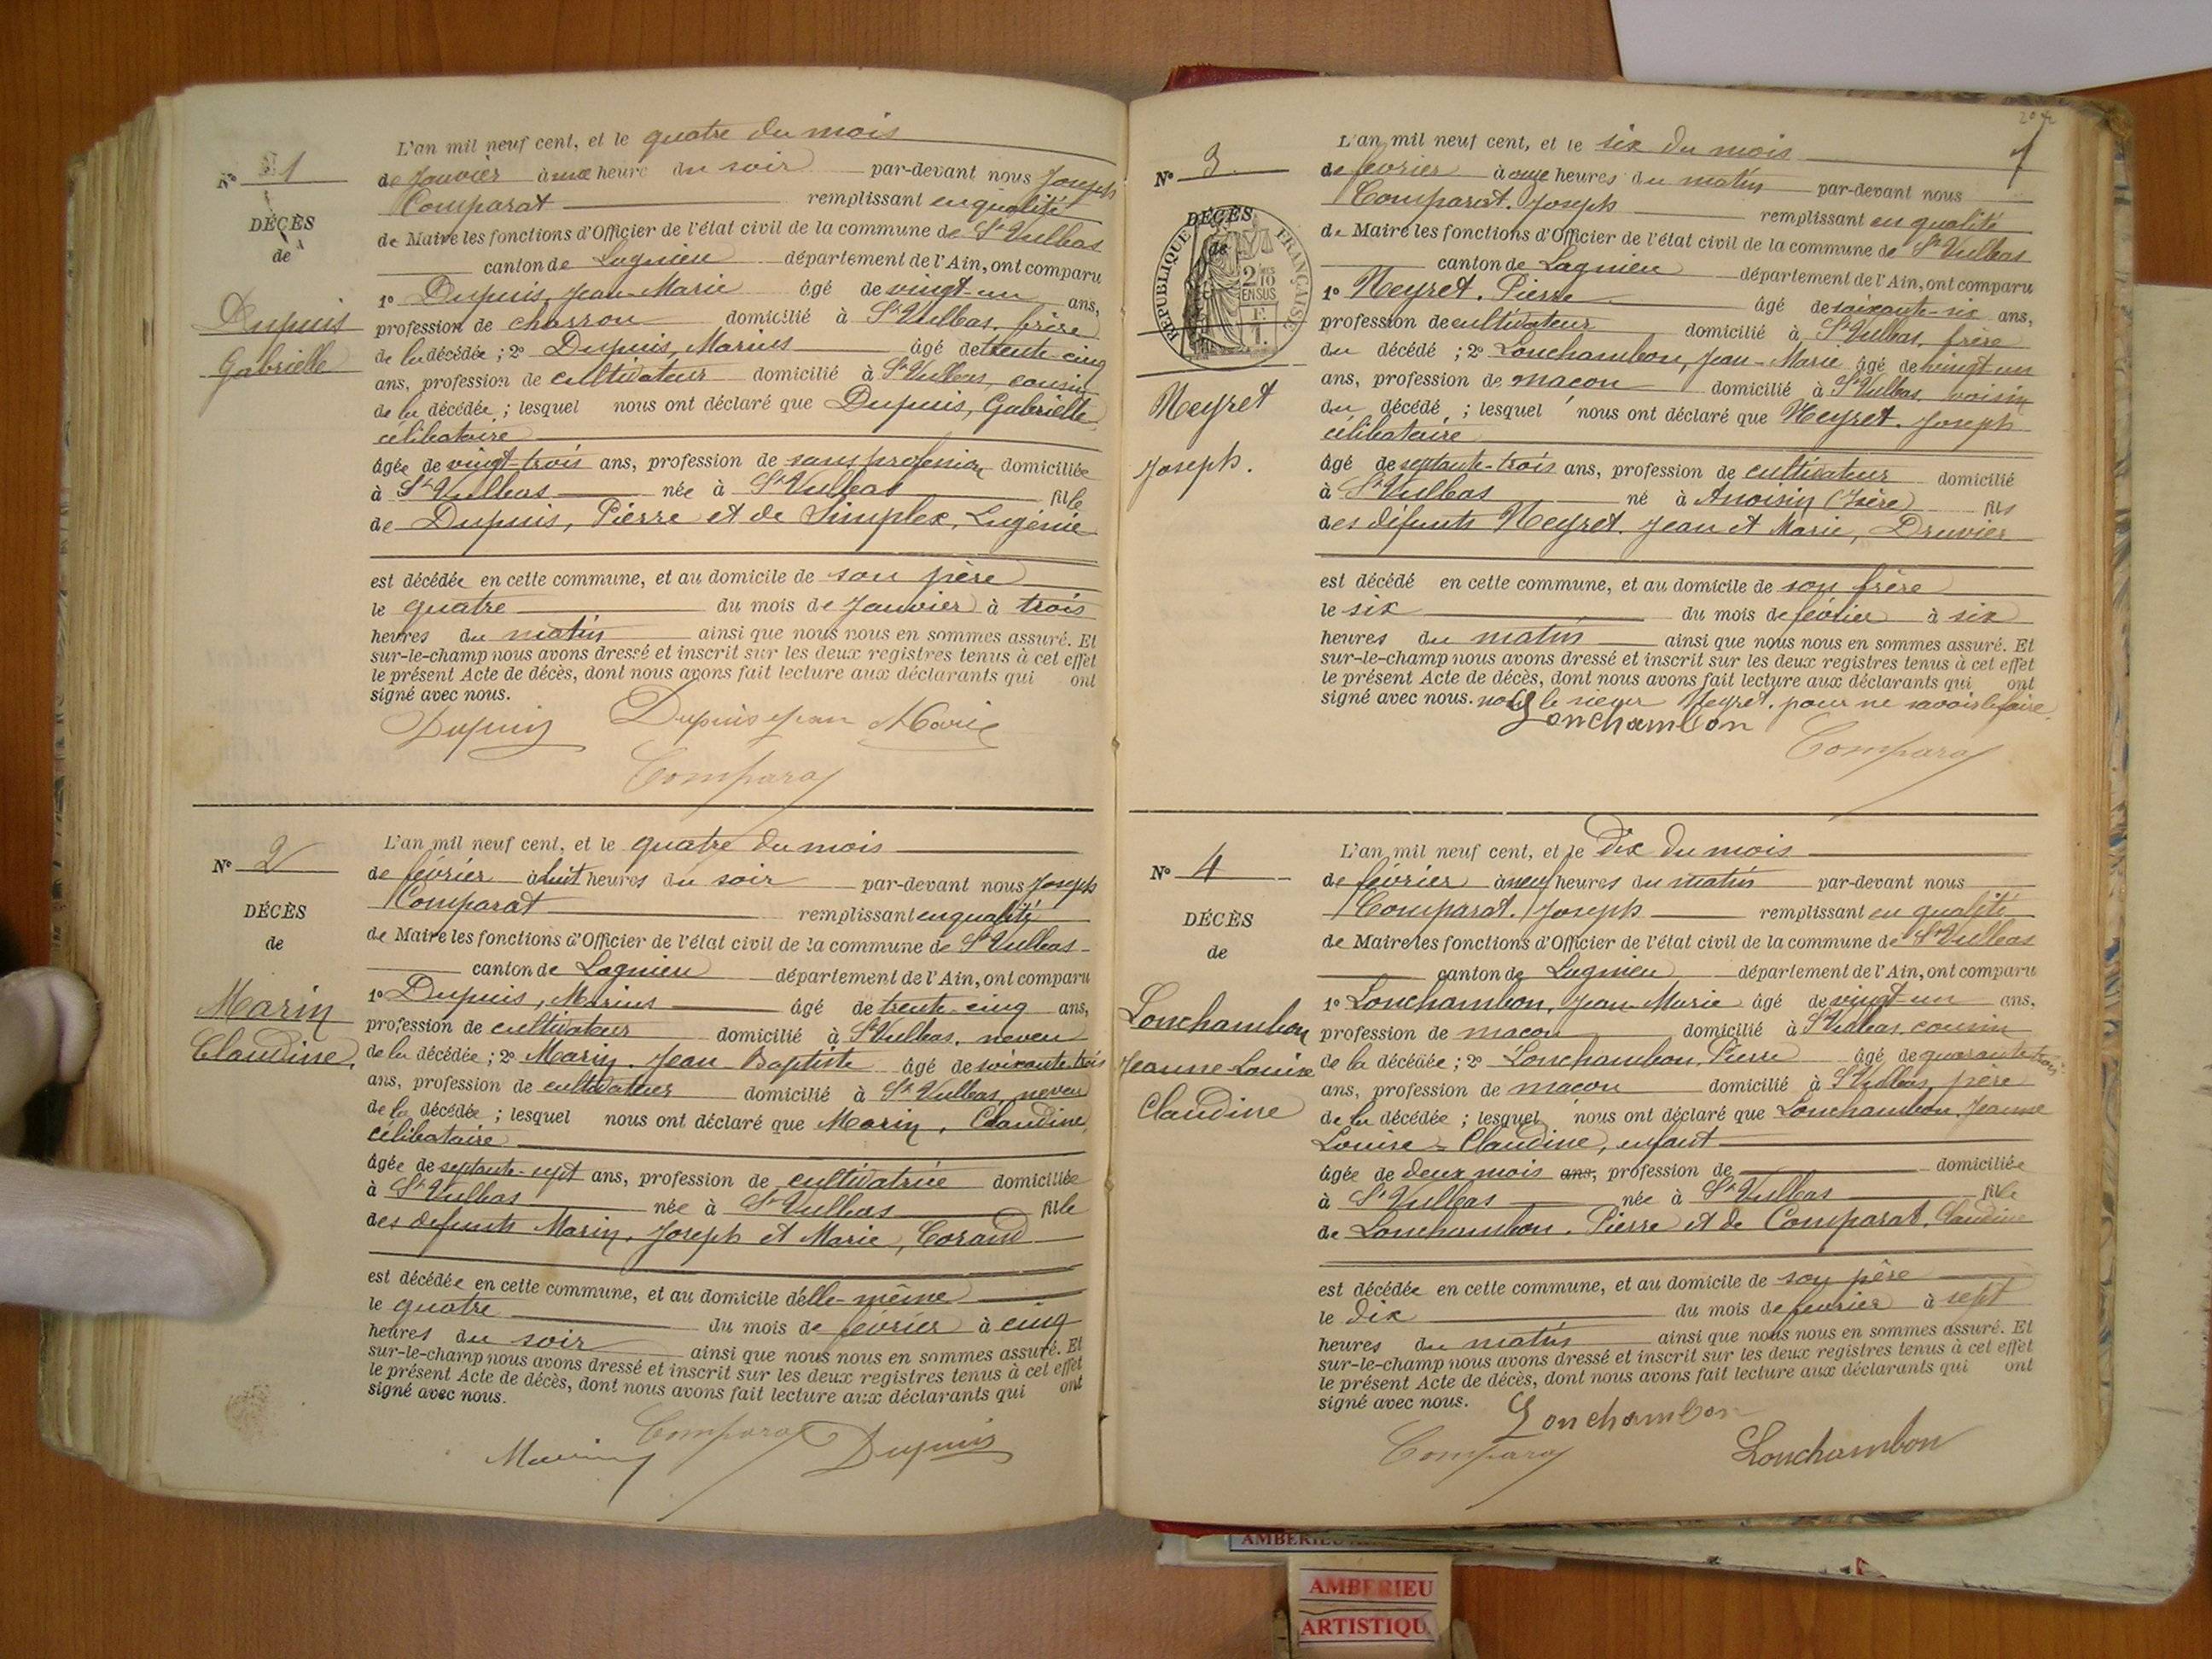 N° 1
DÉCÈS
de
Dupuis
Gabrielle
L'an mil neuf cent, et le quatre du mois
de Janvier à une heure du soir par-devant nous Joseph
Comparat remplissant en qualité
de Maire les fonctions d'Officier de l'état civil de la commune de St Vulbas
canton de Lagnieu département de l'Ain, ont comparu
1° Dupuis, Jean-Marie âgé de vingt-un ans,
profession de charron domicilié à St Vulbas, frère
de la décédée ; 2° Dupuis, Marius âgé de trente-cinq
ans, profession de cultivateur domicilié à St Vulbas, cousin
de la décédée ; lesquel nous ont déclaré que Dupuis, Gabrielle,
célibataire
âgée de vingt-trois ans, profession de sans profession domiciliée
à St Vulbas née à St Vulbas fille
de Dupuis, Pierre et de Simplex, Eugénie
est décédée en cette commune, et au domicile de son père
le quatre du mois de Janvier à trois
heures du matin ainsi que nous nous en sommes assuré. Et
sur-le-champ nous avons dressé et inscrit sur les deux registres tenus à cet effet
le présent Acte de décès, dont nous avons fait lecture aux déclarants qui ont
signé avec nous.
Dupuis Dupuis Jean Marie
Comparat
N° 2
DÉCÈS
de
Marin
Claudine.
L'an mil neuf cent, et le quatre du mois
de février à huit heures du soir par-devant nous Joseph
Comparat remplissant en qualité
de Maire les fonctions d'Officier de l'état civil de la commune de St Vulbas
canton de Lagnieu département de l'Ain, ont comparu
1° Dupuis, Marius âgé de trente-cinq ans,
profession de cultivateur domicilié à St Vulbas, neveu
de la décédée ; 2° Marin, Jean-Baptiste âgé de soixante-trois
ans, profession de cultivateur domicilié à St Vulbas, neveu
de la décédée ; lesquel nous ont déclaré que Marin, Claudine,
célibataire
âgée de septante-sept ans, profession de cultivatrice domiciliée
à St Vulbas née à St Vulbas fille
des défunts Marin, Joseph et Marie, Corand
est décédée en cette commune, et au domicile d'elle-même
le quatre du mois de février à cinq
heures du soir ainsi que nous nous en sommes assuré. Et
sur-le-champ nous avons dressé et inscrit sur les deux registres tenus à cet effet
le présent Acte de décès, dont nous avons fait lecture aux déclarants qui ont
signé avec nous.
Comparat
Marin Dupuis
N° 3
DÉCÈS
de
RÉPUBLIQUE FRANÇAISE
2/10 EN SUS
Neyret
Joseph.
L'an mil neuf cent, et le six du mois
de février à onze heures du matin par-devant nous
Comparat, Joseph remplissant en qualité
de Maire les fonctions d'Officier de l'état civil de la commune de St Vulbas
canton de Lagnieu département de l'Ain, ont comparu
1° Neyret, Pierre âgé de soixante-six ans,
profession de cultivateur domicilié à St Vulbas, frère
du décédé ; 2° Lonchambon, Jean-Marie âgé de vingt-un
ans, profession de maçon domicilié à St Vulbas, voisin
du décédé ; lesquel nous ont déclaré que Neyret, Joseph
célibataire
âgé de septante-trois ans, profession de cultivateur domicilié
à St Vulbas né à Anoisin (Isère) fils
des défunts Neyret, Jean et Marie, Druvier
est décédé en cette commune, et au domicile de son frère
le six du mois de février à six
heures du matin ainsi que nous nous en sommes assuré. Et
sur-le-champ nous avons dressé et inscrit sur les deux registres tenus à cet effet
le présent Acte de décès, dont nous avons fait lecture aux déclarants qui ont
signé avec nous. le sieur Neyret, pour ne savoir le faire.
Lonchambon
Comparat
N° 4
DÉCÈS
de
Lonchambon
Jeanne-Louise
Claudine
L'an mil neuf cent, et le dix du mois
de février à neuf heures du matin par-devant nous
Comparat, Joseph remplissant en qualité
de Maire les fonctions d'Officier de l'état civil de la commune de St Vulbas
canton de Lagnieu département de l'Ain, ont comparu
1° Lonchambon, Jean-Marie âgé de vingt-un ans,
profession de maçon domicilié à St Vulbas, cousin
de la décédée ; 2° Lonchambon, Pierre âgé de quarante-trois
ans, profession de maçon domicilié à St Vulbas, père
de la décédée ; lesquel nous ont déclaré que Lonchambon, Jeanne
Louise-Claudine, enfant
âgée de deux mois ans, profession de domiciliée
à St Vulbas née à St Vulbas fille
de Lonchambon, Pierre et de Comparat, Claudine
est décédée en cette commune, et au domicile de son père
le dix du mois de février à sept
heures du matin ainsi que nous nous en sommes assuré. Et
sur-le-champ nous avons dressé et inscrit sur les deux registres tenus à cet effet
le présent Acte de décès, dont nous avons fait lecture aux déclarants qui ont
signé avec nous.
Lonchambon
Comparat Lonchambon
AMBERIEU
ARTISTIQU